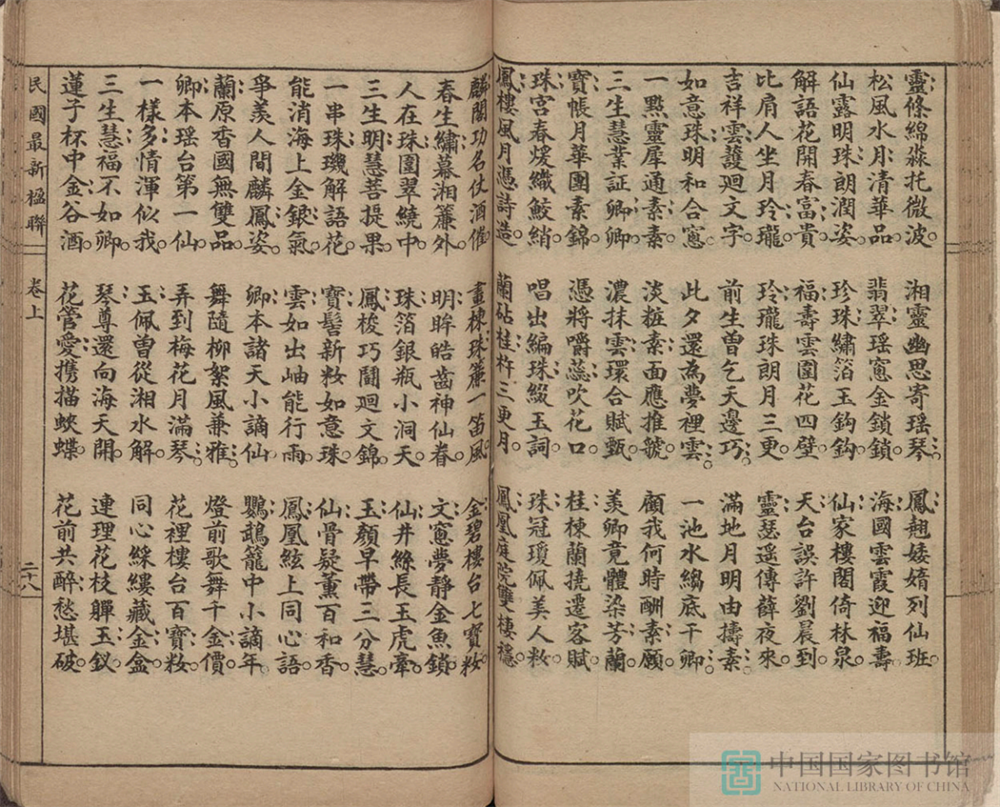 靈條綿淼托微波
湘靈幽思寄瑶琴
鳳翹婑媠列仙班
松風水月清華品
翡翠瑶窻金鎖鎖
海國雲霞迎福壽
仙露明珠朗潤姿
珍珠繡箔玉鈎鈎
仙家樓閣倚林泉
解語花開春富貴
福壽雲圍花四壁
天台誤許劉晨到
比肩人坐月玲瓏
玲瓏珠朗月三更
靈瑟遥傳薛夜來
吉祥雲護廻文字
前生曾乞天邊巧
滿地月明由擣素
如意珠明和合窻
此夕還為夢裡雲
一池水縐底干卿
一點靈犀通素素
淡粧素面應推虢
顧我何時酬素願
三生慧業証卿卿
濃抹雲環合賦甄
羙卿竟體染芳蘭
寶帳月華團素錦
憑將嚼蕊吹花口
桂棟蘭撓遷客賦
珠宮春煖織鮫綃
唱出編珠綴玉詞
珠冠瓊佩美人粧
鳳樓風月憑詩造
蘭砧桂杵三更月
鳳凰庭院雙棲穩
麟閣功名仗酒催
畫棟珠簾一笛風
金碧樓台七寶粧
春生繡幕湘簾外
明眸皓齒神仙眷
文窻夢靜金魚鎖
人在珠圍翠繞中
珠箔銀瓶小洞天
仙井絲長玉虎牽
三生明慧菩提果
鳳梭巧鬭廻文錦
玉顏早帶三分慧
一串珠璣解語花
寶髻新粧如意珠
仙骨疑薰百和香
能消海上金銀氣
雲如出岫能行雨
鳳凰絃上同心語
爭羙人間麟鳳姿
卿本諸天小謫仙
鸚鵡籠中小謫年
蘭原香國無雙品
舞隨柳絮風兼雅
燈前歌舞千金價
卿本瑶台第一仙
弄到梅花月滿琴
花裡樓台百寶粧
一樣多情渾似我
玉佩曾從湘水解
同心綵縷藏金盒
三生慧福不如卿
琴尊還向海天開
連理花枝軃玉釵
蓮子杯中金谷酒
花管愛携描蛺蝶
花前共醉愁堪破
民國最新楹聯
卷上
二十八
中国国家图书馆
NATIONAL LIBRARY OF CHINA